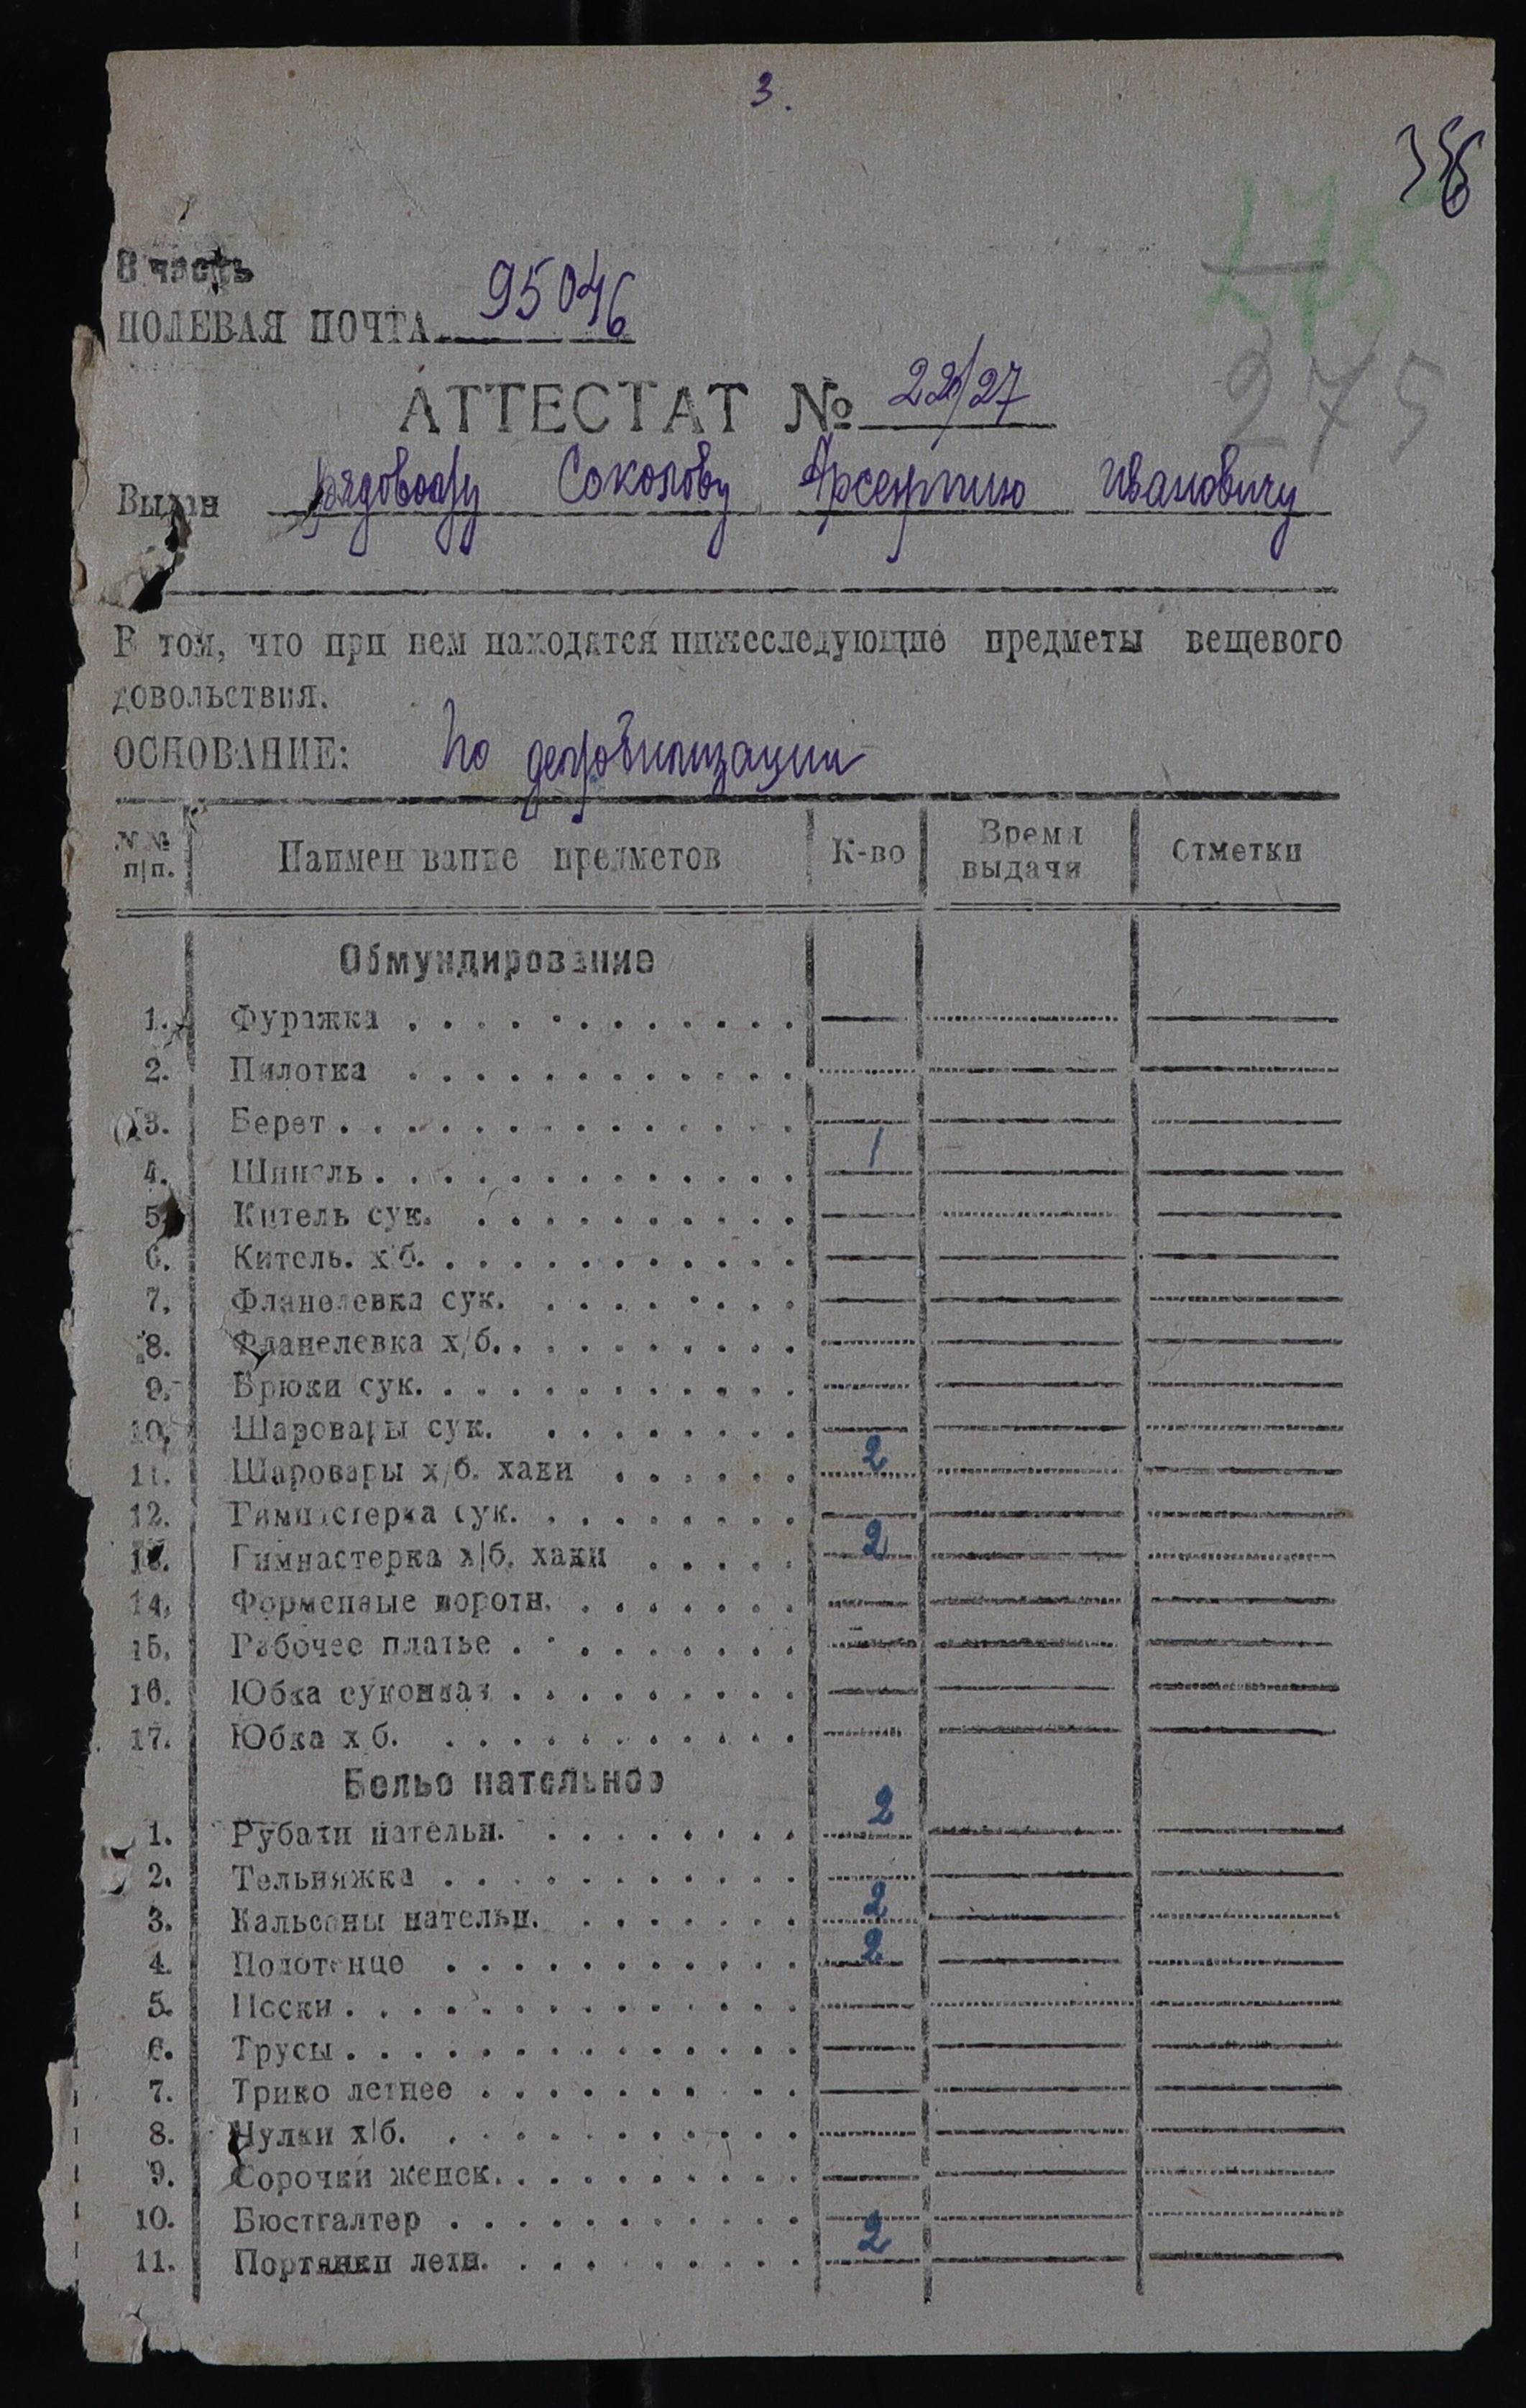 3.
356
275
275
В часть
ПОЛЕВАЯ ПОЧТА 95046
АТТЕСТАТ № 22/27
Выдан рядовому Соколову Арсентию Ивановичу
В том, что при нем находятся нижеследующие предметы вещевого
довольствия.
ОСНОВАНИЕ: по демобилизации
№№ п|п. Наименование предметов К-во Время выдачи Отметки
Обмундирование
1. Фуражка
2. Пилотка
3. Берет
4. Шинель 1
5. Китель сук.
6. Китель. х/б.
7. Фланелевка сук.
8. Фланелевка х/б.
9. Брюки сук.
10. Шаровары сук.
11. Шаровары х/б. хаки 2
12. Гимнастерка сук.
13. Гимнастерка х|б. хаки 2
14. Форменные воротн.
15. Рабочее платье
16. Юбка суконная
17. Юбка х/б.
Белье нательное
1. Рубахи нательн. 2
2. Тельняжка
3. Кальсоны нательн. 2
4. Полотенце 2
5. Носки
6. Трусы
7. Трико летнее
8. Чулки х|б.
9. Сорочки женск.
10. Бюстгалтер
11. Портянки летн. 2